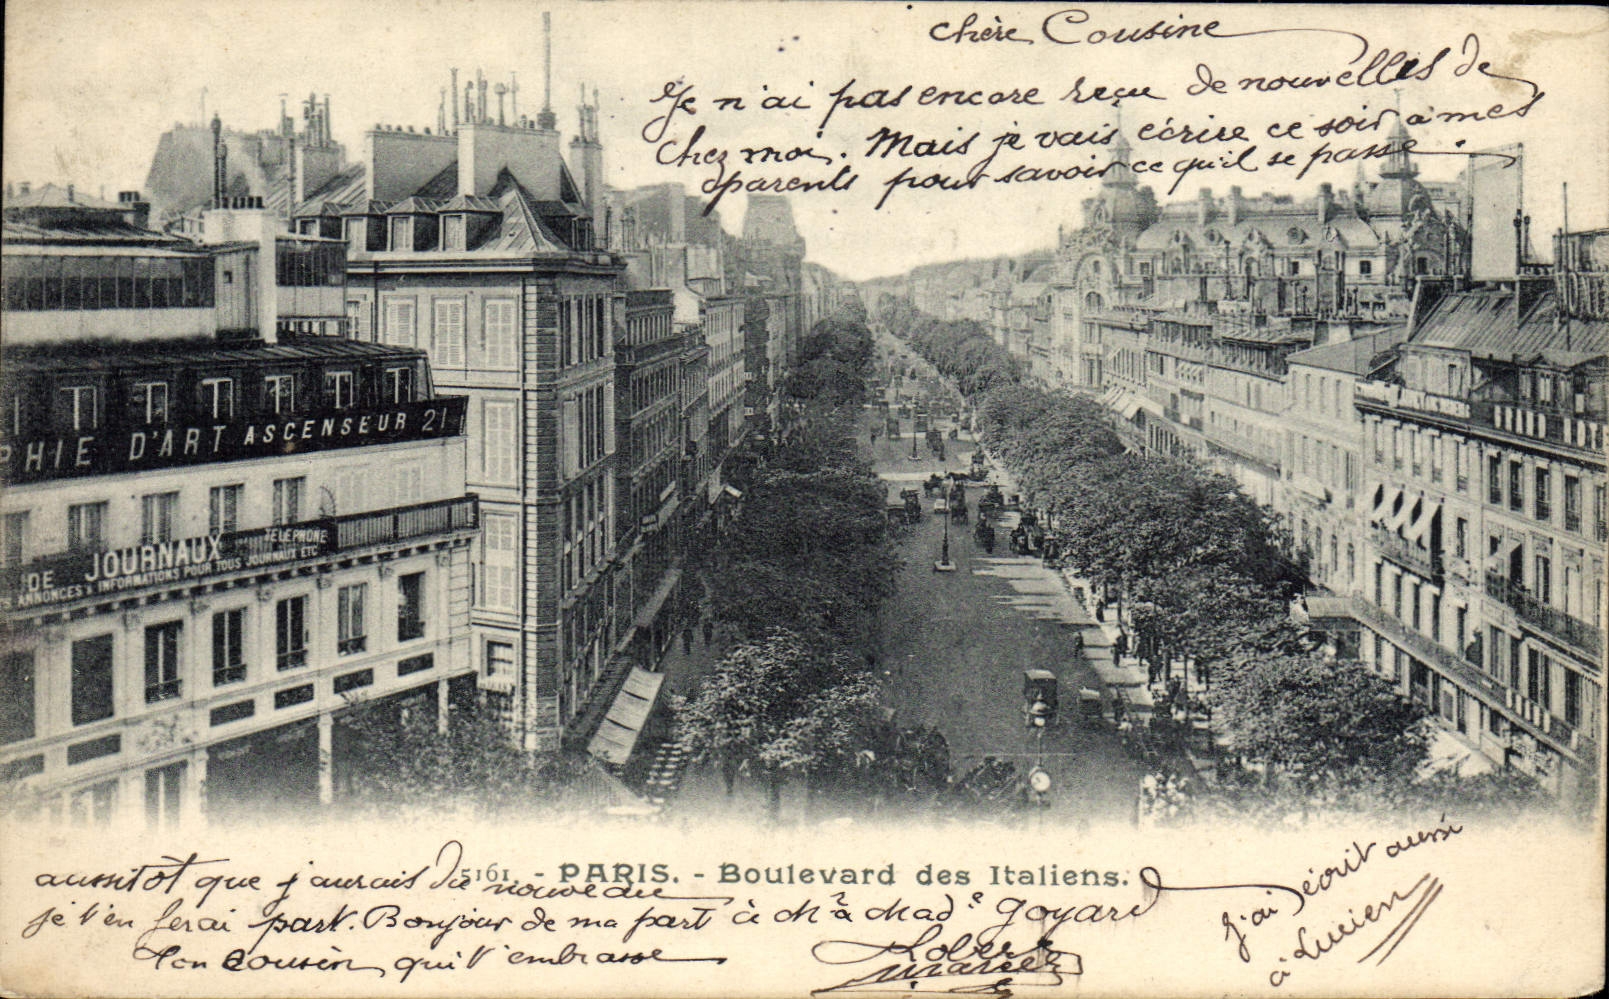 chère Cousine
Je n'ai pas encore reçu de nouvelles de
chez moi. Mais je vais écrire ce soir à mes
parents pour savoir ce qu'il se passe.
PHIE D'ART ASCENSEUR 21
DE JOURNAUX TELEPHONE
ANNONCES & INFORMATIONS POUR TOUS JOURNAUX ETC
5161. - PARIS. - Boulevard des Italiens.
aussitôt que j'aurais du nouveau
je t'en ferai part. Bonjour de ma part à Mr & Made Goyard
Ton Cousin qui t'embrasse
Robert
J'ai écrit aussi
à Lucien